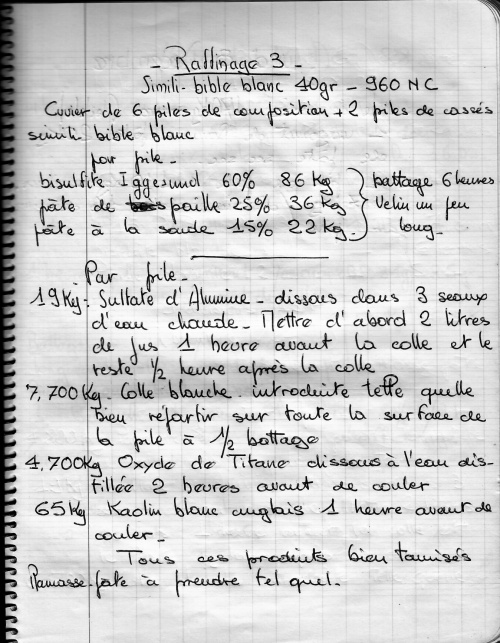 - Raffinage 3 -
Simili-bible blanc 40gr - 960 NC
Cuvier de 6 piles de composition + 2 piles de cassés
simili bible blanc
par pile -
bisulfite Iggesund 60% 86 Kg } battage 6 heures
pâte de paille 25% 36 Kg } Velin un peu
pâte à la soude 15% 22 Kg } long -
Par pile -
19 Kg - Sulfate d'Alumine - dissous dans 3 seaux
d'eau chaude - Mettre d'abord 2 litres
de jus 1 heure avant la colle et le
reste 1/2 heure après la colle
7,700 Kg - Colle blanche - introduite telle quelle
bien répartir sur toute la surface de
la pile à 1/2 battage
4,700 Kg Oxyde de Titane dissous à l'eau dis-
tillée 2 heures avant de couler
65 Kg Kaolin blanc anglais 1 heure avant de
couler -
Tous ces produits bien tamisés
Ramasse-pâte à prendre tel quel -